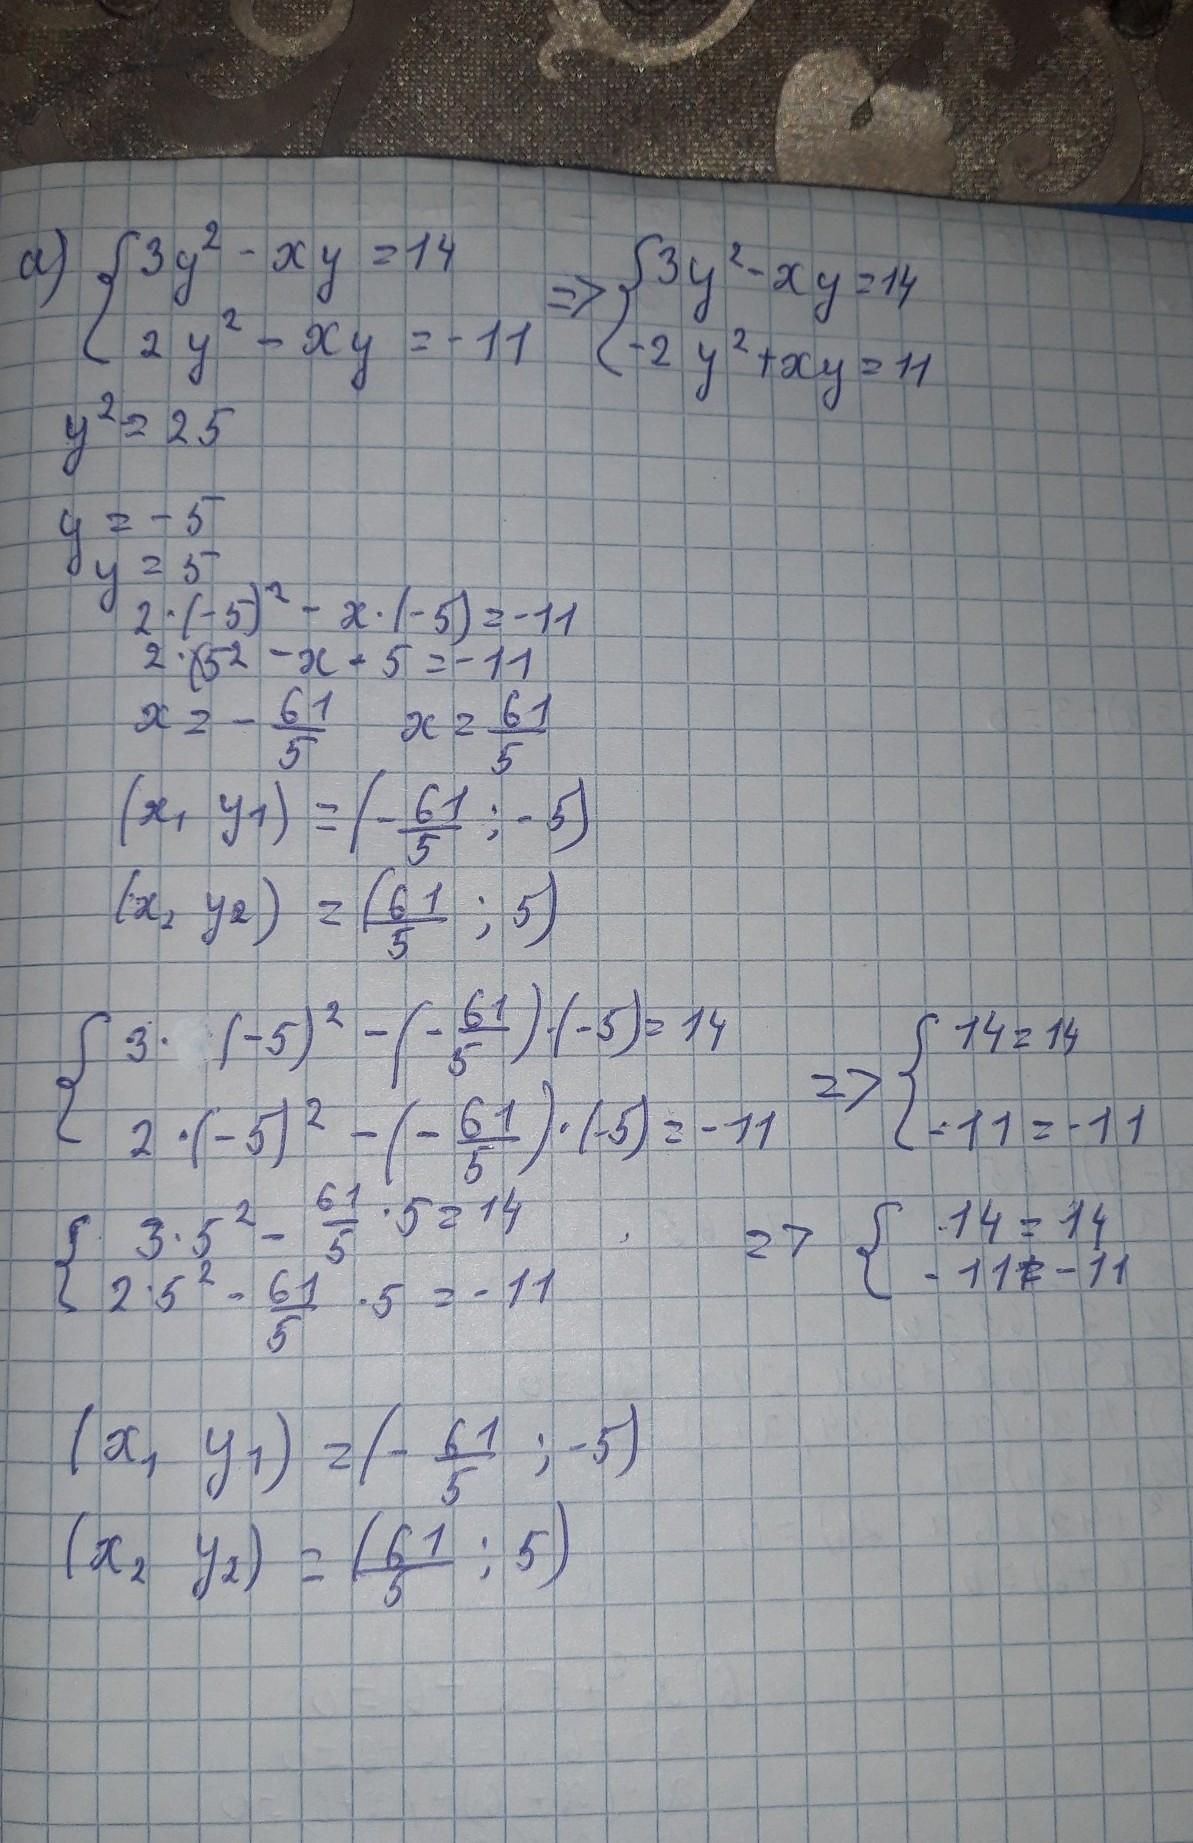 а) { 3y² - xy = 14 => { 3y² - xy = 14
2y² - xy = -11 -2y² + xy = 11
y² = 25
y = -5
y = 5
2·(-5)² - x·(-5) = -11
2·(5² - x · 5 = -11
x = - 61/5 x = 61/5
(x₁ y₁) = (- 61/5 ; -5)
(x₂ y₂) = (61/5 ; 5)
{ 3· (-5)² - (- 61/5)·(-5) = 14 => { 14 = 14
2·(-5)² - (- 61/5)·(-5) = -11 -11 = -11
{ 3·5² - 61/5 ·5 = 14 => { 14 = 14
2·5² - 61/5 ·5 = -11 -11 = -11
(x₁ y₁) = (- 61/5 ; -5)
(x₂ y₂) = (61/5 ; 5)